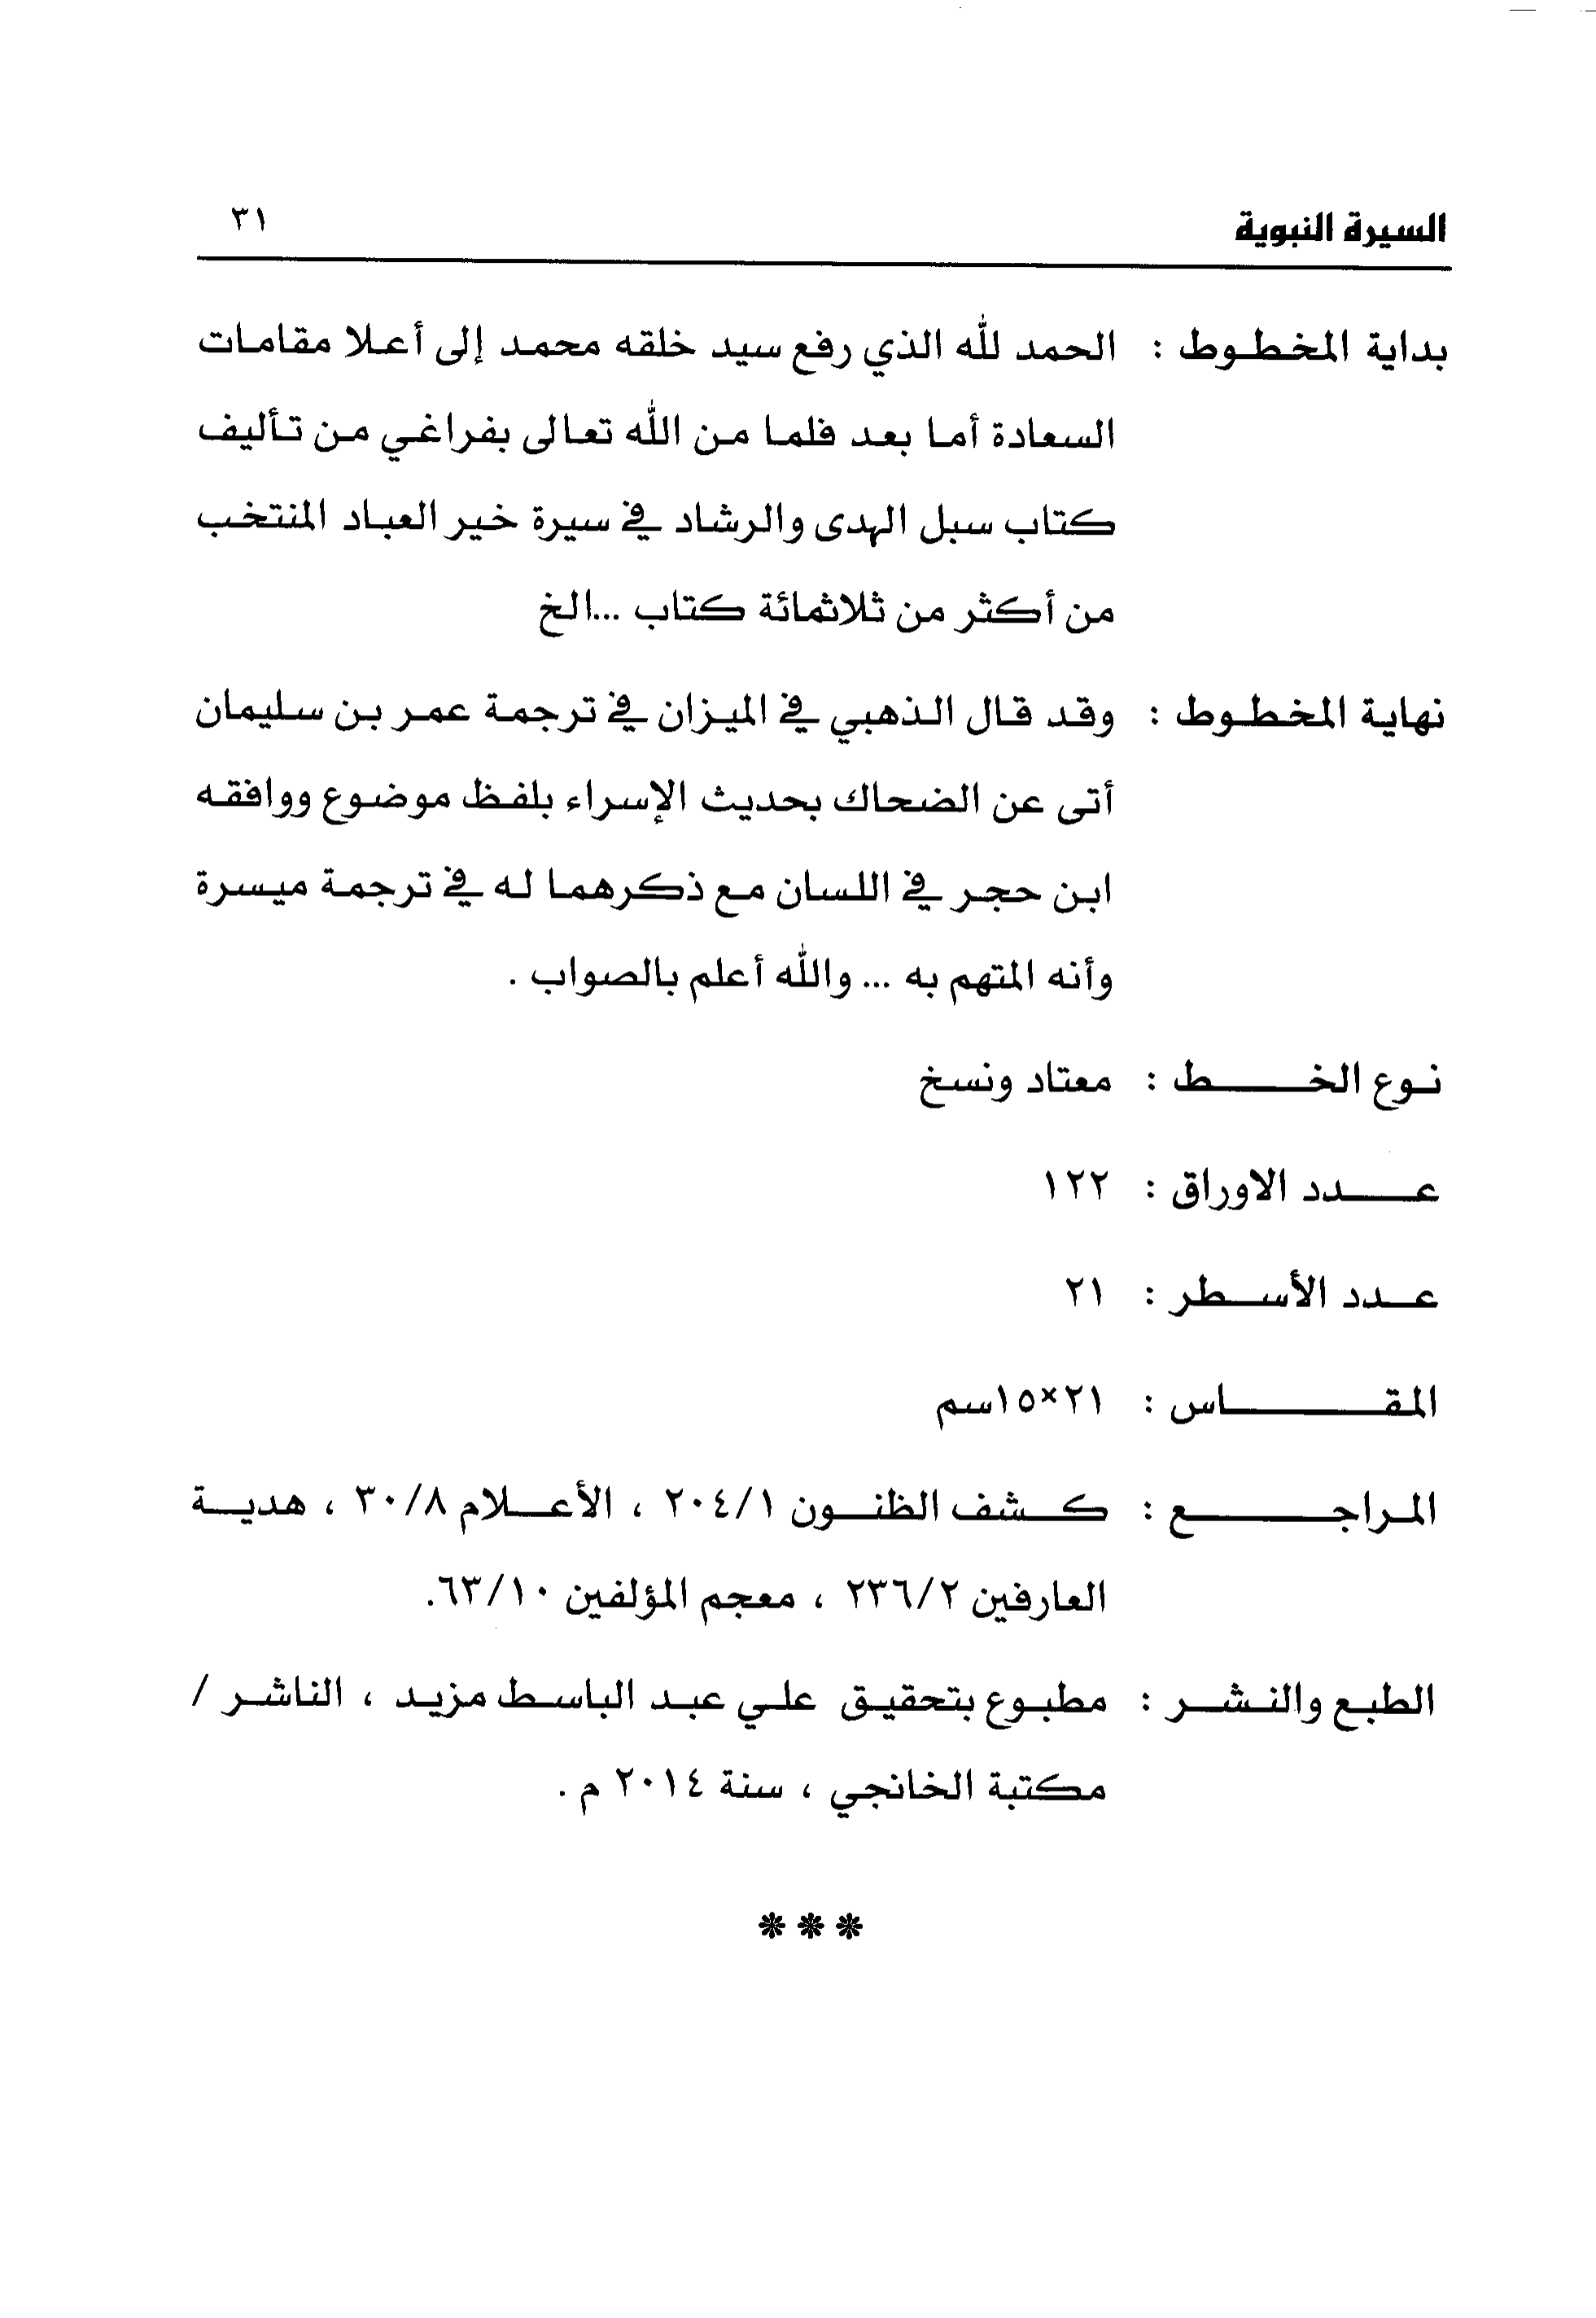 السيرة النبوية ٣١
بداية المخطوط : الحمد لله الذي رفع سيد خلقه محمد إلى أعلا مقامات
السعادة أما بعد فلما من الله تعالى بفراغي من تأليف
كتاب سبل الهدى والرشاد في سيرة خير العباد المنتخب
من أكثر من ثلاثمائة كتاب ...الخ
نهاية المخطوط : وقد قال الذهبي في الميزان في ترجمة عمر بن سليمان
أتى عن الضحاك بحديث الإسراء بلفظ موضوع ووافقه
ابن حجر في اللسان مع ذكرهما له في ترجمة ميسرة
وأنه المتهم به ... والله أعلم بالصواب .
نوع الخط : معتاد ونسخ
عدد الاوراق : ١٢٢
عدد الأسطر : ٢١
المقاس : ٢١×١٥سم
المراجع : كشف الظنون ٢٠٤/١ ، الأعلام ٣٠/٨ ، هدية
العارفين ٢٣٦/٢ ، معجم المؤلفين ٦٣/١٠.
الطبع والنشر : مطبوع بتحقيق علي عبد الباسط مزيد ، الناشر /
مكتبة الخانجي ، سنة ٢٠١٤ م .
***